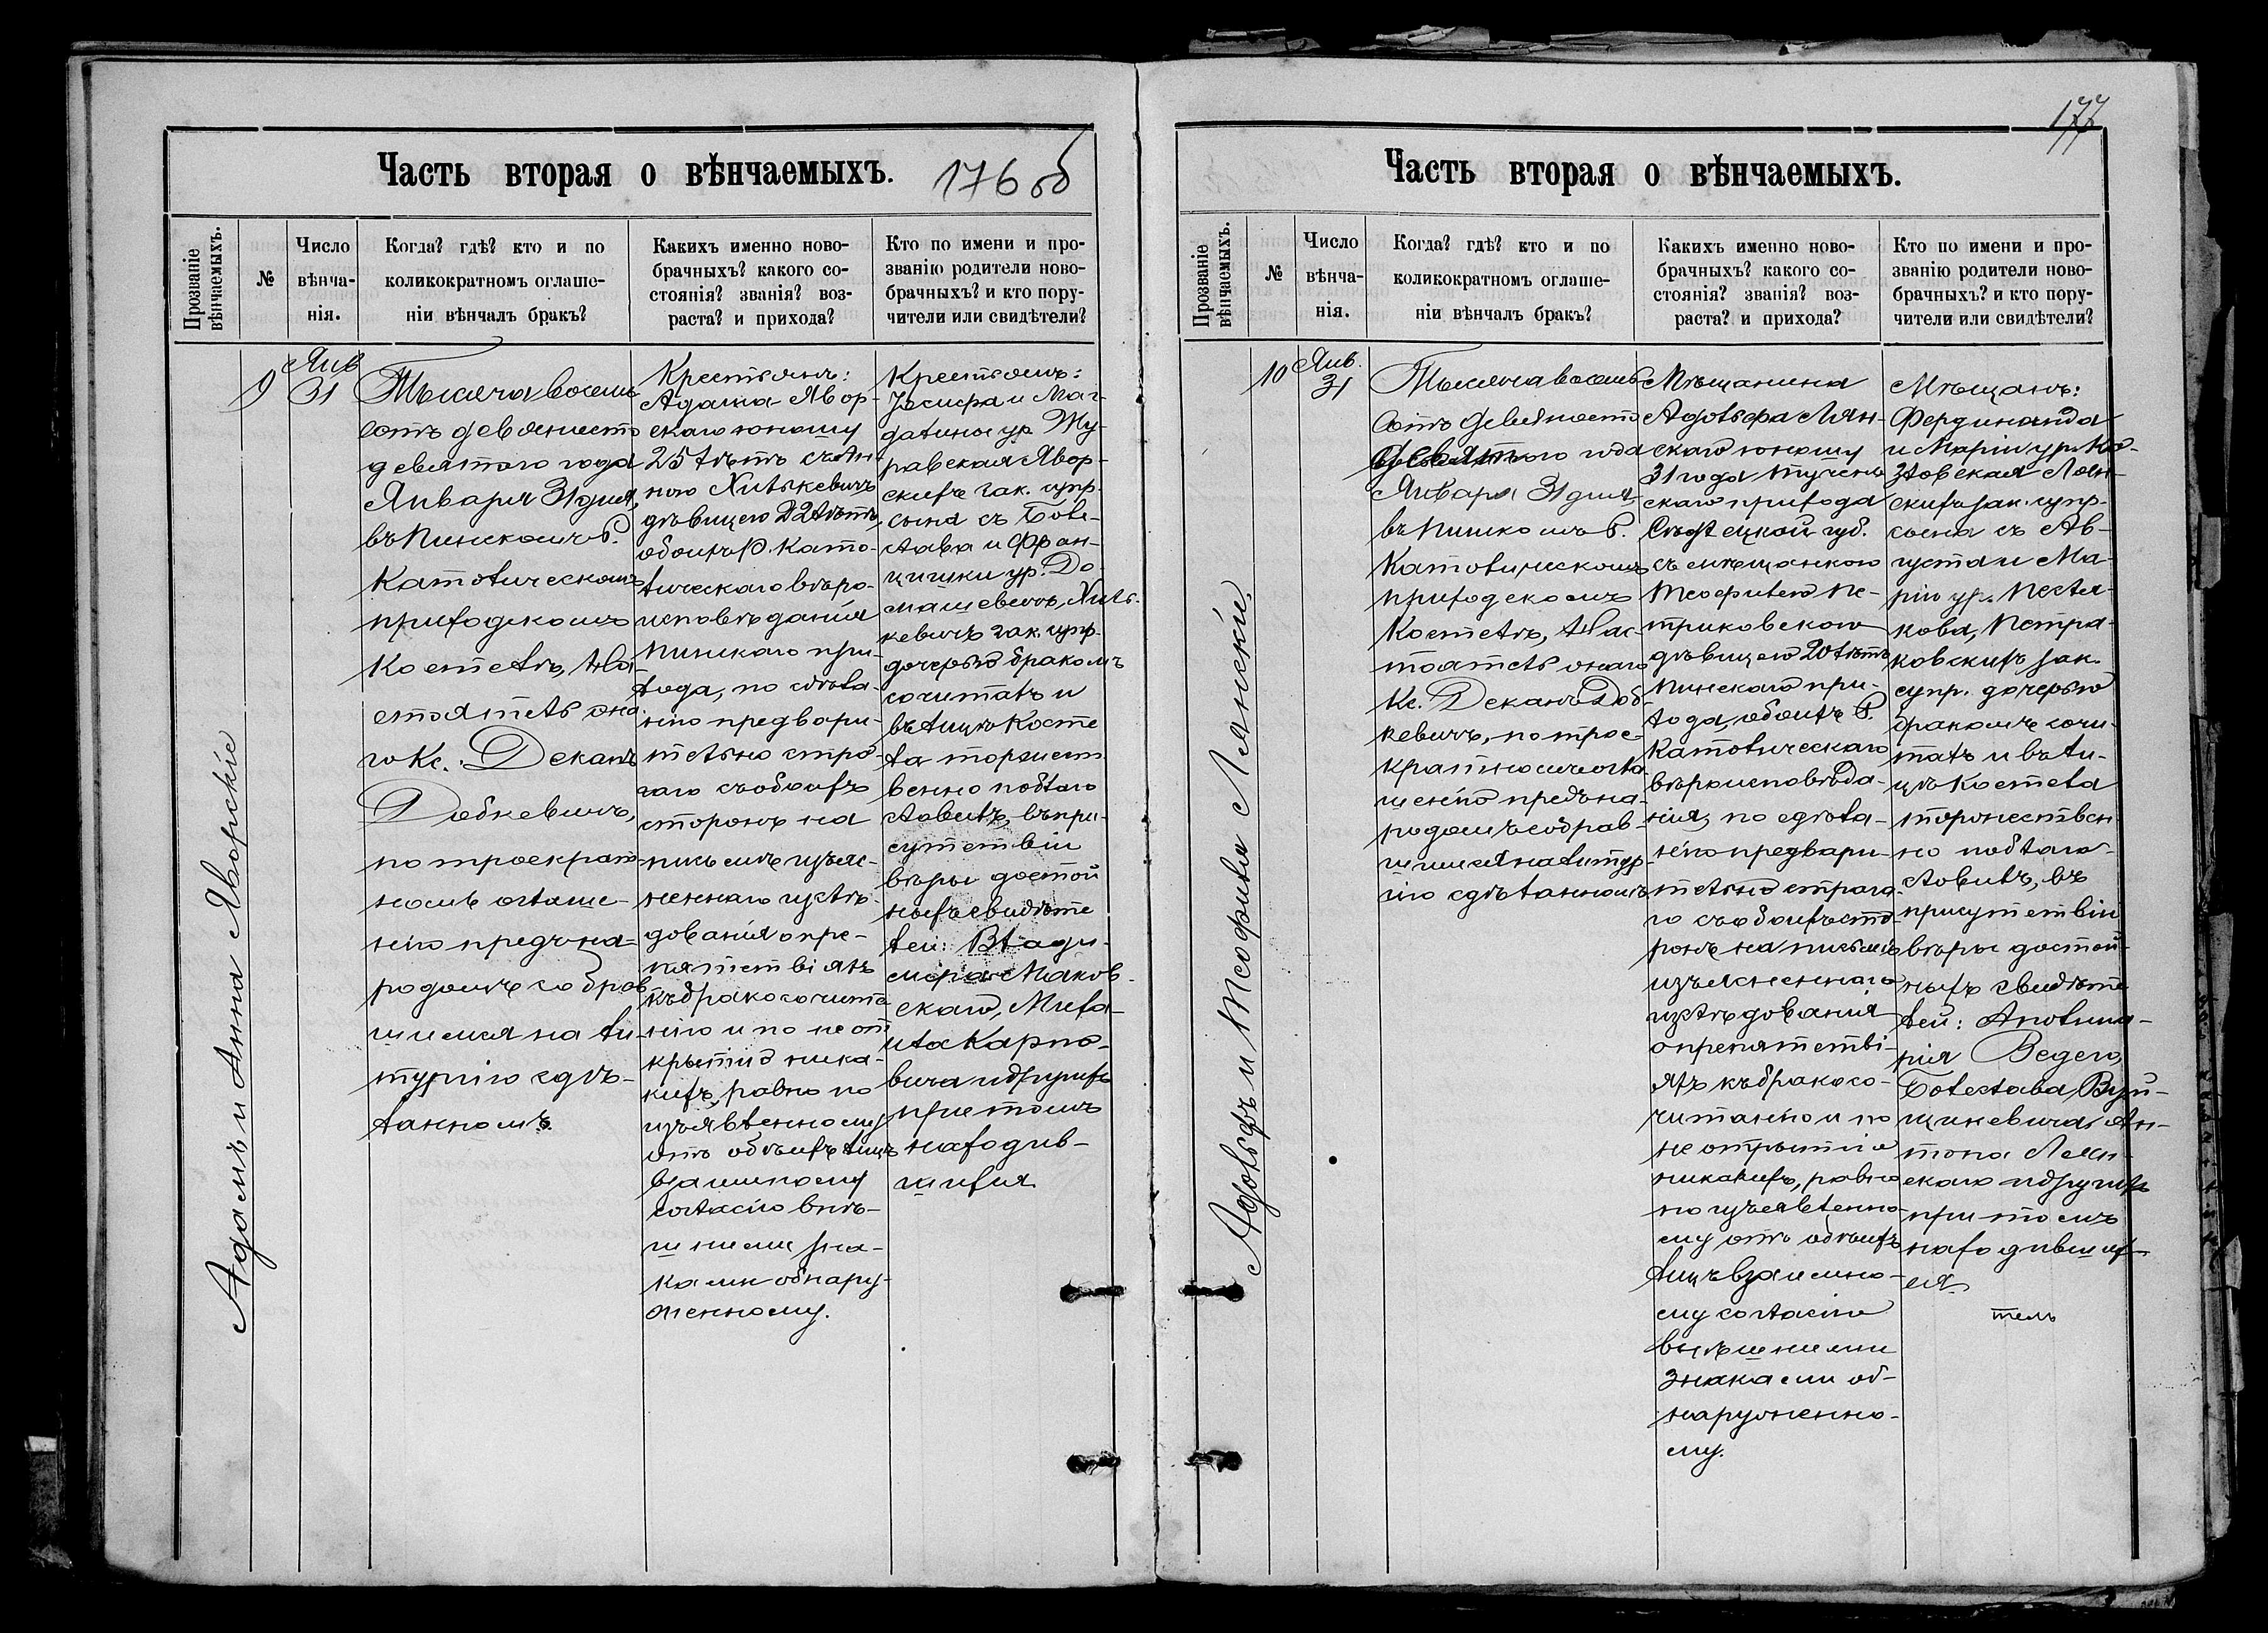 Часть вторая о вѣнчаемыхъ.
176 об
Прозваніе вѣнчаемыхъ.
№
Число вѣнча-
нія.
Когда? гдѣ? кто и по
коликократномъ оглаше-
ніи вѣнчалъ бракъ?
Какихъ именно ново-
брачныхъ? какого со-
стоянія? званія? воз-
раста? и прихода?
Кто по имени и про-
званію родители ново-
брачныхъ? и кто пору-
чители или свидѣтели?
Адамъ и Анна Яворскіе
9
Янв
31
Тысяча восемь
сотъ девяносто
девятого года
Января 31 дня,
въ Пинскомъ Р.
Католическомъ
приходскомъ
Костелѣ, На
стоятель она
го Кс. Деканъ
Добкевичъ,
по троекрат
номъ оглаше-
нію предъ на-
родомъ собрав
шимся на ли-
тургію сдѣ-
ланномъ.
Крестьянъ:
Адама Явор-
скаго юношу
25 лѣтъ съ Ан-
ною Хилькевичъ
дѣвицею 22 лѣтъ,
обоихъ Р. Като-
лическаго вѣро-
исповѣданія
Пинскаго при-
хода, по сдѣла-
нію предвари-
тельно стро-
гаго съ обоихъ
сторонъ на
письмѣ изъяс-
неннаго изслѣ-
дованія о пре-
пятствіяхъ
къ бракосочита
нію и по не от
крытіи ника-
кихъ, равно по
изъявленному
отъ обоихъ лицъ
взаимному
согласію внѣ-
шними зна-
ками обнару-
женному.
Крестьянъ:
Іосифа и Маг-
далины ур. Жу-
равская Явор-
скихъ зак. супр.
сына съ Боле-
слава и Фран-
цишки ур. До-
машевичъ, Хиль-
кевичъ зак. супр.
дочерью бракомъ
сочиталъ и
въ лицѣ Косте
ла торжест
венно побла­го
словилъ, въ при-
сутствіи
вѣры достой
ныхъ свидѣте
лей: Влади-
мира Маков-
скаго, Миха-
ила Карпо-
вича и другихъ
при томъ
находив-
шихся
Часть вторая о вѣнчаемыхъ.
177
Прозваніе вѣнчаемыхъ.
№
Число вѣнча-
нія.
Когда? гдѣ? кто и по
коликократномъ оглаше-
ніи вѣнчалъ бракъ?
Какихъ именно ново-
брачныхъ? какого со-
стоянія? званія? воз-
раста? и прихода?
Кто по имени и про-
званію родители ново-
брачныхъ? и кто пору-
чители или свидѣтели?
Адольфъ и Теофиля Лянскіи.
10
Янв.
31
Тысяча восемь
сотъ девяносто
девятого года
Января 31 дня
въ Пинскомъ Р.
Католическомъ
приходскомъ
Костелѣ, Нас-
тоятель онаго
Кс. Деканъ Доб-
кевичъ, по трое-
кратномъ огла
шенію предъ на-
родомъ собрав-
шимся на литур-
гію сдѣланномъ
Мѣщанина
Адольфа Лян-
скаго юношу
31 года
скаго прихода
Сѣдлецкой губ.
съ мѣщанкою
Теофилею Пе-
триковскою
дѣвицею 20 лѣтъ
Пинскаго при-
хода, обоихъ Р.
Католическаго
вѣроисповѣда-
нія, по сдѣла-
нію предвари-
тельно строга
го съ обоихъ сто
ронъ на письмѣ
изъясненнаго
изслѣдованія
о препятстві-
яхъ къ бракосо-
читанію и по
не открытіи
никакихъ, равно
по изъявленно
му отъ обоихъ
лицъ взаимно-
му согласію
внѣшними
знаками об-
наруженно-
му.
Мѣщанъ:
Фердинанда
и Маріи ур. Ко-
зловская Лян-
скихъ зак. супр.
сына съ Ав-
густа и Ма-
ріи ур.
кова, Петри-
ковскихъ зак.
супр. дочерью
бракомъ сочи-
талъ и въ ли-
цѣ Костела
торжествен
но поблаго-
словилъ, въ
присутствіи
вѣры достой-
ныхъ свидѣте
лей: Аполина-
рія Веден,
Болеслава Вуй-
цикевича, Ан-
тона Лян-
скаго и другихъ
при томъ
находившихъ
ся